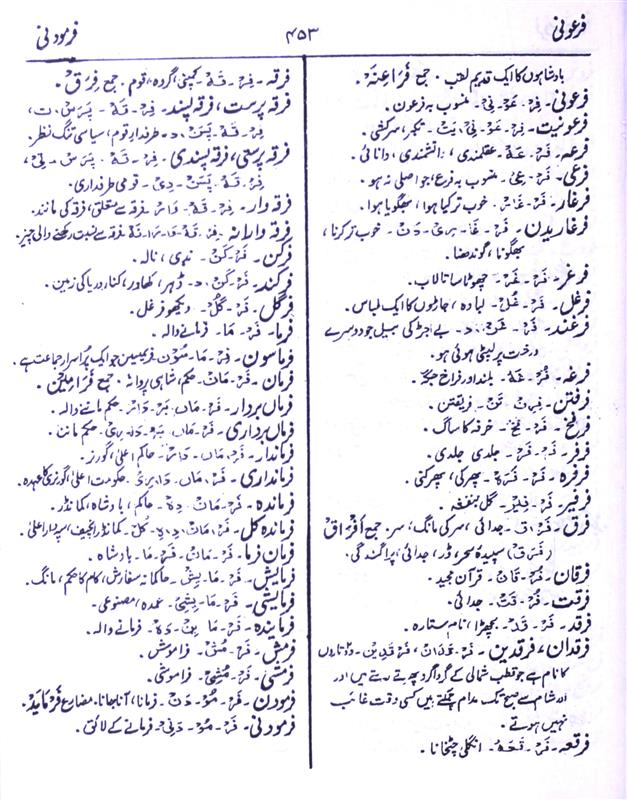 فرعونی
۴۵۳
فرمودنی
بادشاہوں کا ایک قدیم لقب ۔ جمع فَرَاعِنَہ ۔
فرعونی ۔ فِرْ ۔ عَوْ ۔ نِیْ ۔ منسوب بہ فرعون ۔
فرعونیت ۔ فِرْ ۔ عَوْ ۔ نِیْ ۔ یَتْ ۔ تکبر، سرکشی ۔
فرعہ ۔ فَرْ ۔ عَہْ ۔ عقلمندی، دانشمندی، دانائی ۔
فرعی ۔ فَرْ ۔ عِیْ ۔ منسوب بہ فرع، جو اصلی نہ ہو ۔
فرغار ۔ فَرْ ۔ غَاسْ ۔ خوب تر کیا ہوا، بھگویا ہوا ۔
فرغاریدن ۔ فَرْ ۔ غَا ۔ رِیْ ۔ دَنْ ۔ خوب تر کرنا،
بھگونا، گوندھنا ۔
فرغر ۔ فَرْ ۔ غَرْ ۔ چھوٹا سا تالاب ۔
فرغل ۔ فَرْ ۔ غُلْ ۔ لبادہ، جاڑوں کا ایک لباس ۔
فرغند ۔ فَرْ ۔ غَنْدْ ۔ د ۔ بے جڑ کی بیل جو دوسرے
درخت پر لپٹی ہوئی ہو ۔
فرغہ ۔ فُرْ ۔ غَہْ ۔ بلند اور فراخ جگہ ۔
فرفتن ۔ فِرِفْ ۔ تَنْ ۔ فریفتن ۔
فرفخ ۔ فَرْ ۔ فَخْ ۔ خرفہ کا ساگ ۔
فرفر ۔ فَرْ ۔ فَرْ ۔ جلدی جلدی ۔
فرفرہ ۔ فَرْ ۔ فَرَہْ ۔ پھرکی، پھرکنی ۔
فرفیر ۔ فَرْ ۔ فِیْرْ ۔ گل بنفشہ ۔
فرق ۔ فَرْ ۔ ق ۔ جدائی، سر کی مانگ، سر ۔ جمع اَفْرَاقْ
(فَرَقْ) سپیدۂ سحر، ڈر، جدائی، پراگندگی ۔
فرقان ۔ فُرْ ۔ قَانْ ۔ قرآن مجید ۔
فرقت ۔ فُرْ ۔ قَتْ ۔ جدائی ۔
فرقد ۔ فَرْ ۔ قَدْ ۔ بچھڑا، نام ستارہ ۔
فرقدان، فرقدین ۔ فَرْ ۔ قَدَانْ، فَرْ قَدِیْن ۔ دو تاروں
کا نام ہے جو قطب شمالی کے گرداگرد پھرتے رہتے ہیں اور
اور شام سے صبح تک مدام چمکتے ہیں کسی وقت غائب
نہیں ہوتے ۔
فرقعہ ۔ فَرْ ۔ قَعَہْ ۔ انگلی چٹخانا ۔
فرقہ ۔ فِرْ ۔ قَہْ ۔ کمپنی، گروہ، قوم ۔ جمع فِرَقْ ۔
فرقہ پرست، فرقہ پسند ۔ فِرْ ۔ قَہْ ۔ پَرَسْ ۔ ت،
فِرْ ۔ قَہْ ۔ پَسَنْ ۔ د ۔ طرفدار قوم، سیاسی تنگ نظر ۔
فرقہ پرستی، فرقہ پسندی ۔ فِرْ ۔ قَہْ ۔ پَرَسْ ۔ تِیْ،
فِرْ ۔ قَہْ ۔ پَسَنْ ۔ دِیْ ۔ قومی طرفداری ۔
فرقہ وار ۔ فِرْ ۔ قَہْ ۔ وَاسْ ۔ فرقہ سے متعلق، فرقہ کی مانند ۔
فرقہ وارانہ ۔ فِرْ ۔ قَہْ ۔ وَا ۔ رَا ۔ نَہْ ۔ فرقہ سے نسبت رکھنے والی چیز ۔
فرکن ۔ فَرْ ۔ کَنْ ۔ ندی، نالہ ۔
فرکند ۔ فَرْ ۔ کَنْ ۔ د ۔ ڈہر، کھادر، کنار دریا کی زمین ۔
فرگل ۔ فَرْ ۔ گُلْ ۔ دیکھو فرغل ۔
فرما ۔ فَرْ ۔ مَا ۔ فرمانے والہ ۔
فرماسون ۔ فِرْ ۔ مَا ۔ سُوْن ۔ فریمیسن جو ایک پراسرار جماعت ہے ۔
فرمان ۔ فَرْ ۔ مَانْ ۔ حکم، شاہی پروانہ ۔ جمع فَرَامِیْنْ ۔
فرماں بردار ۔ فَرْ ۔ مَاں ۔ بَرْ ۔ دَاسْ ۔ حکم ماننے والہ ۔
فرماں برداری ۔ فَرْ ۔ مَاں ۔ بَرْ ۔ دَا ۔ رِیْ ۔ حکم ماننا ۔
فرماندار ۔ فَرْ ۔ مَاں ۔ دَاسْ ۔ حاکم اعلیٰ، گورنر ۔
فرمانداری ۔ فَرْ ۔ مَاں ۔ دَا ۔ رِیْ ۔ حکومت اعلیٰ، گورنری کا عہدہ ۔
فرماندہ ۔ فَرْ ۔ مَانْ ۔ دِہْ ۔ حاکم، بادشاہ، کمانڈر ۔
فرماندہ کل ۔ فَرْ ۔ مَانْ ۔ دِہِ ۔ کُلْ ۔ کمانڈر انچیف، سپہ سالار اعلیٰ ۔
فرمان فرما ۔ فَرْ ۔ مَانْ ۔ فَرْ ۔ مَا ۔ بادشاہ ۔
فرمایش ۔ فَرْ ۔ مَا ۔ یِشْ ۔ حاکمانہ سفارش، کام کا حکم، مانگ ۔
فرمایشی ۔ فَرْ ۔ مَا ۔ یِشِیْ ۔ عمدہ، مصنوعی ۔
فرمایندہ ۔ فَرْ ۔ مَا ۔ یَنْ ۔ دَہْ ۔ فرمانے والہ ۔
فرمش ۔ فَرْ ۔ مُشْ ۔ فراموش ۔
فرمشی ۔ فَرْ ۔ مُشِیْ ۔ فراموشی ۔
فرمودن ۔ فَرْ ۔ مُوْ ۔ دَنْ ۔ فرمانا، آنا جانا ۔ مضارع فَرْمَایَدْ ۔
فرمودنی ۔ فَرْ ۔ مُوْ ۔ دَنِیْ ۔ فرمانے کے لائق ۔